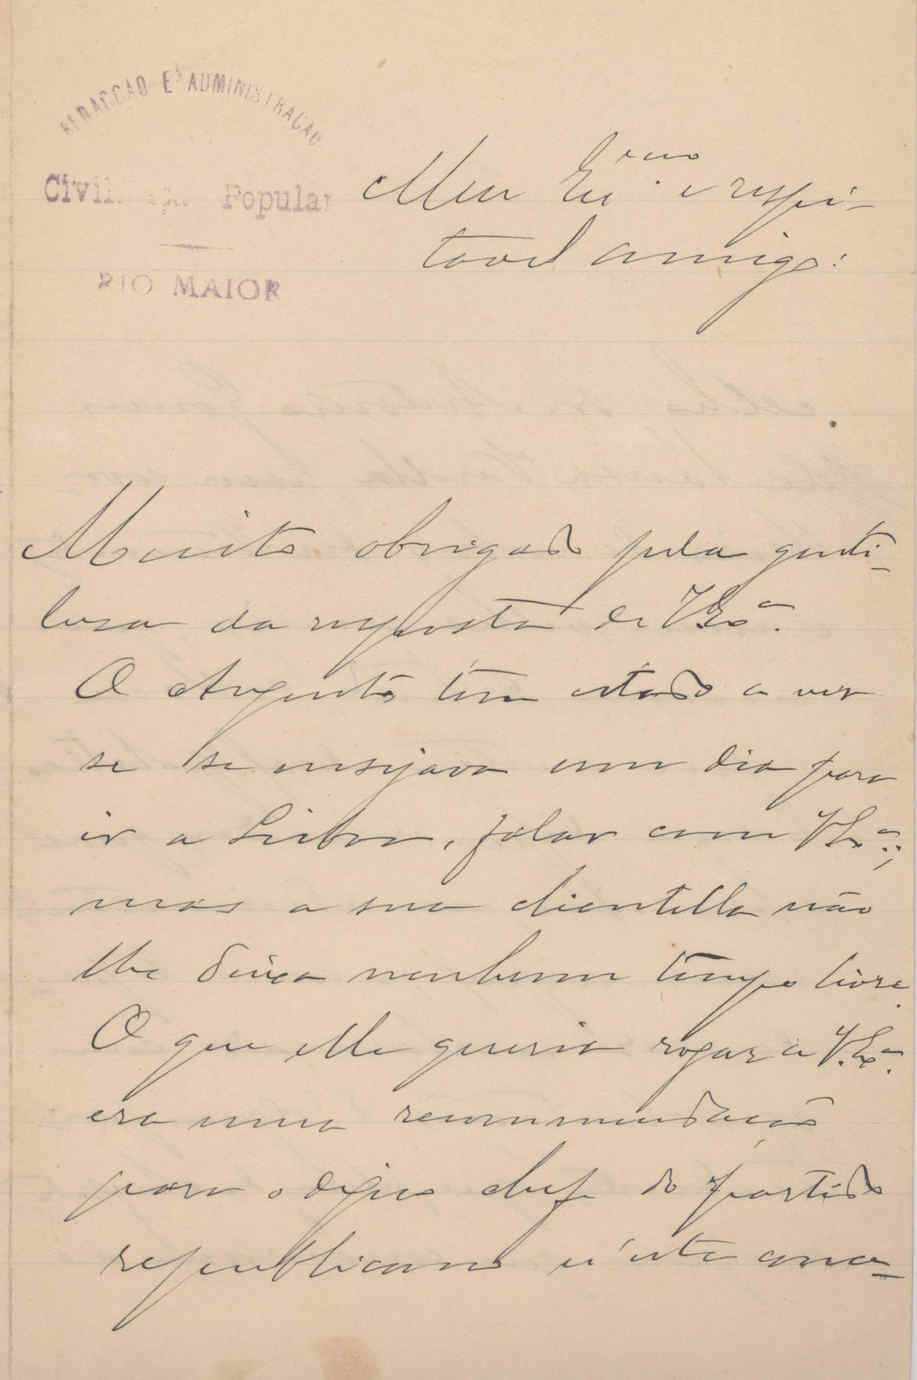 REDACÇÃO E ADMINISTRAÇÃO
Civilização Popular
RIO MAIOR
Meu Ex.mo e respei-
tavel amigo:
Muito obrigado pela genti-
leza da resposta de V. Ex.ª.
O Augusto tem estado a ver
se se ensejava um dia para
ir a Lisboa, falar com V. Ex.ª;
mas a sua clientella não
lhe deixa nenhum tempo livre.
O que elle queria rogar a V. Ex.ª.
era uma recommendação
para o digno chefe do partido
republicano n'este